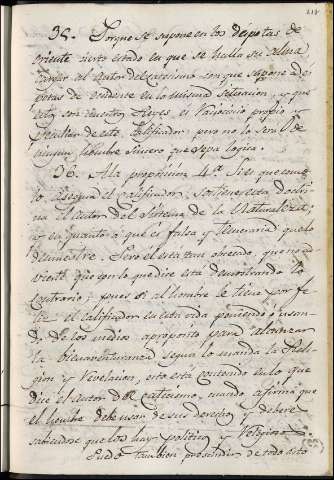 35. Porque se supone en los déspotas de
oriente cierto estado en que se halla su alma
cargar al Autor del catecismo con que supone a dés-
potas de occidente en la misma situacion, y que
estos son nuestros Reyes, es raciocinio propio y
peculiar de este calificador, pero no lo será de
ningun hombre sincero que sepa logica.
36. A la proposicion 4.ª Si es que como
lo asegura el calificador, sostiene esta doctri
na el autor del Sistema de la Naturaleza;
y en quanto a que es falsa y temeraria que lo
demuestre. Pero él está tan obcecado, que no ad
vierte que con lo que dice está demostrando lo
contrario; pues si al hombre se tiene por fe-
liz el calificador en esta vida poniendo o usan-
do de los medios aproposito para alcanzar
la bienaventuranza segun lo manda la Reli-
gion y Revelacion, esto está contenido en lo que
dice el autor del catecismo, cuando afirma que
el hombre debe usar de sus derechos, y deberes
sabiendose que los hay politicos y Religiosos.
Puedo tambien prescindir de todo esto